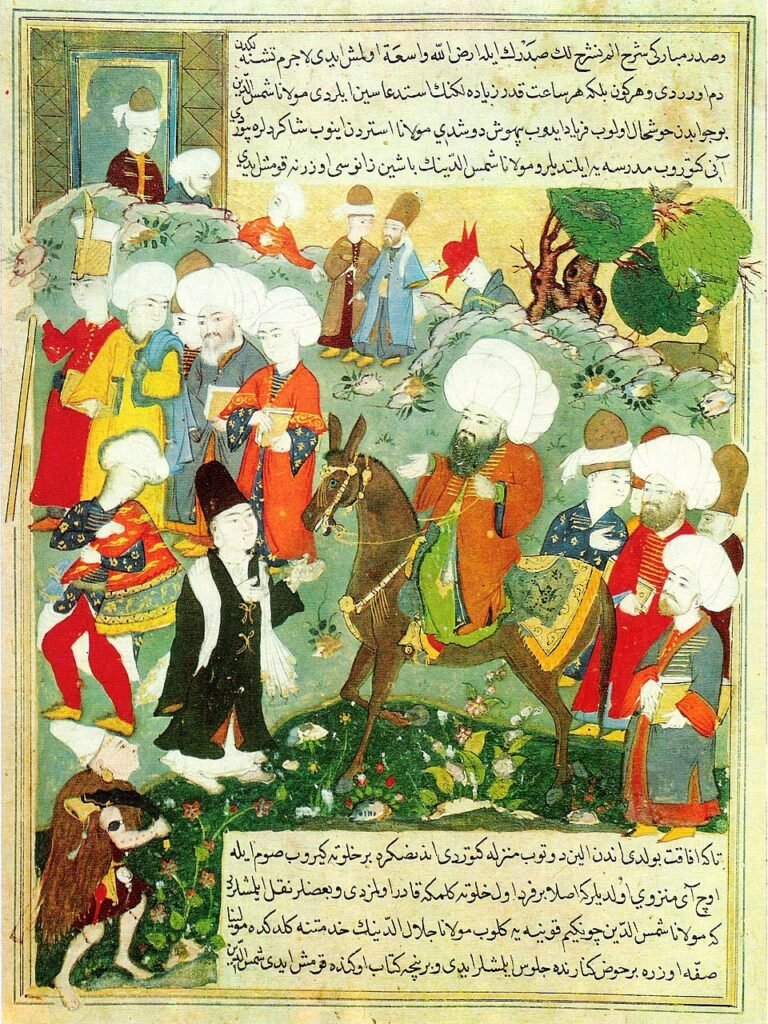 وصدر مباركى شرح الم نشرح لك صدرك ايله ارض الله واسعة اولمش ايدى لاجرم تشنه لكدن
دم اورردى و هر كون بلكه هر ساعت قدرن زياده لكنك استدعاسين ايلردى مولانا شمس الدين
بو جوابدن خوشحال اولوب فرياد ايدوب بيهوش دوشدى مولانا استردن اينوب شاكردلره بيوردى
آنى كتوروب مدرسه يه ايلتديلر و مولانا شمس الدينك باشين زانوسى اوزرنه قومش ايدى
تا كه افاقت بولدى اندن الين دوتوب منزله كتوردى اندنصكره بر خلوته كيروب صوم ايله
اوچ آى منزوى اولديلر كه اصلا بر فرد اول خلوته كلمكه قادر اولمزدى و بعضلر نقل ايلمشلر
كه مولانا شمس الدين چونكيم قونيه يه كلوب مولانا جلال الدينك خدمتنه كلدكده مولانا
صفه اوزره بر حوض كنارنده جلوس ايلمشلر ايدى و بر نيچه كتاب اوكنده قومش ايدى شمس الدين